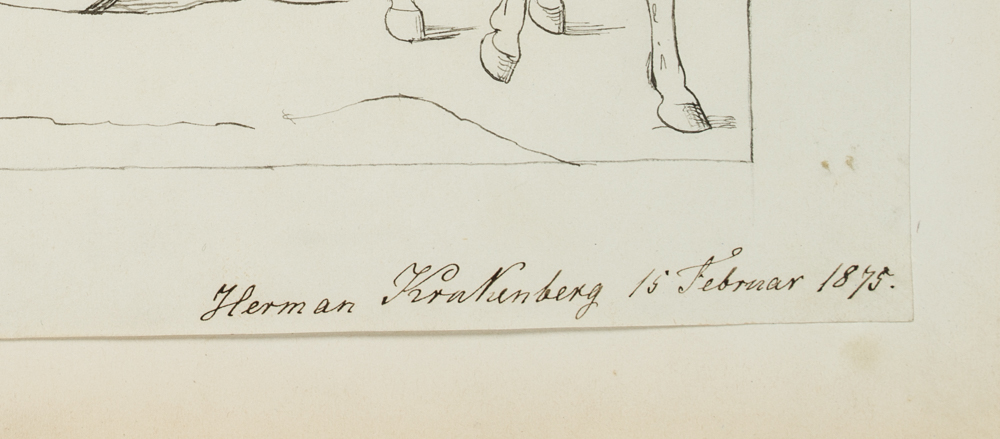 Herman Krakenberg 15 Februar 1875.